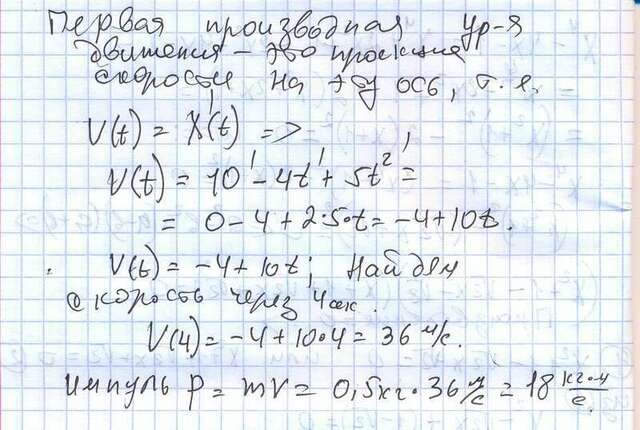 Первая производная ур-я
движения – это проекция
скорости на эту ось, т.е.
V(t) = X'(t) =>
V(t) = 10' - 4t' + 5t²' =
= 0 - 4 + 2·5·t = -4 + 10t.
V(t) = -4 + 10t; Найдём
скорость через 4 сек.
V(4) = -4 + 10·4 = 36 м/с.
импуль p = mV = 0,5кг·36 м/с = 18 кг·м/с.